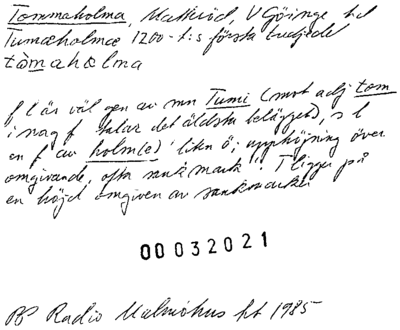 Tommaholma, Matteröd, V Göinge hd
Tumæholmæ 1200-t:s första tredjedel
tòmahælma
f l är väl gen av mn Tumi (mot adj tom
i nag f talar det äldsta belägget), s l
en f av holm(e) 'liten ö; upphöjning över
omgivande, ofta sank mark'. T ligger på
en höjd omgiven av sankmarker
00032021
PP Radio Malmöhus ht 1985